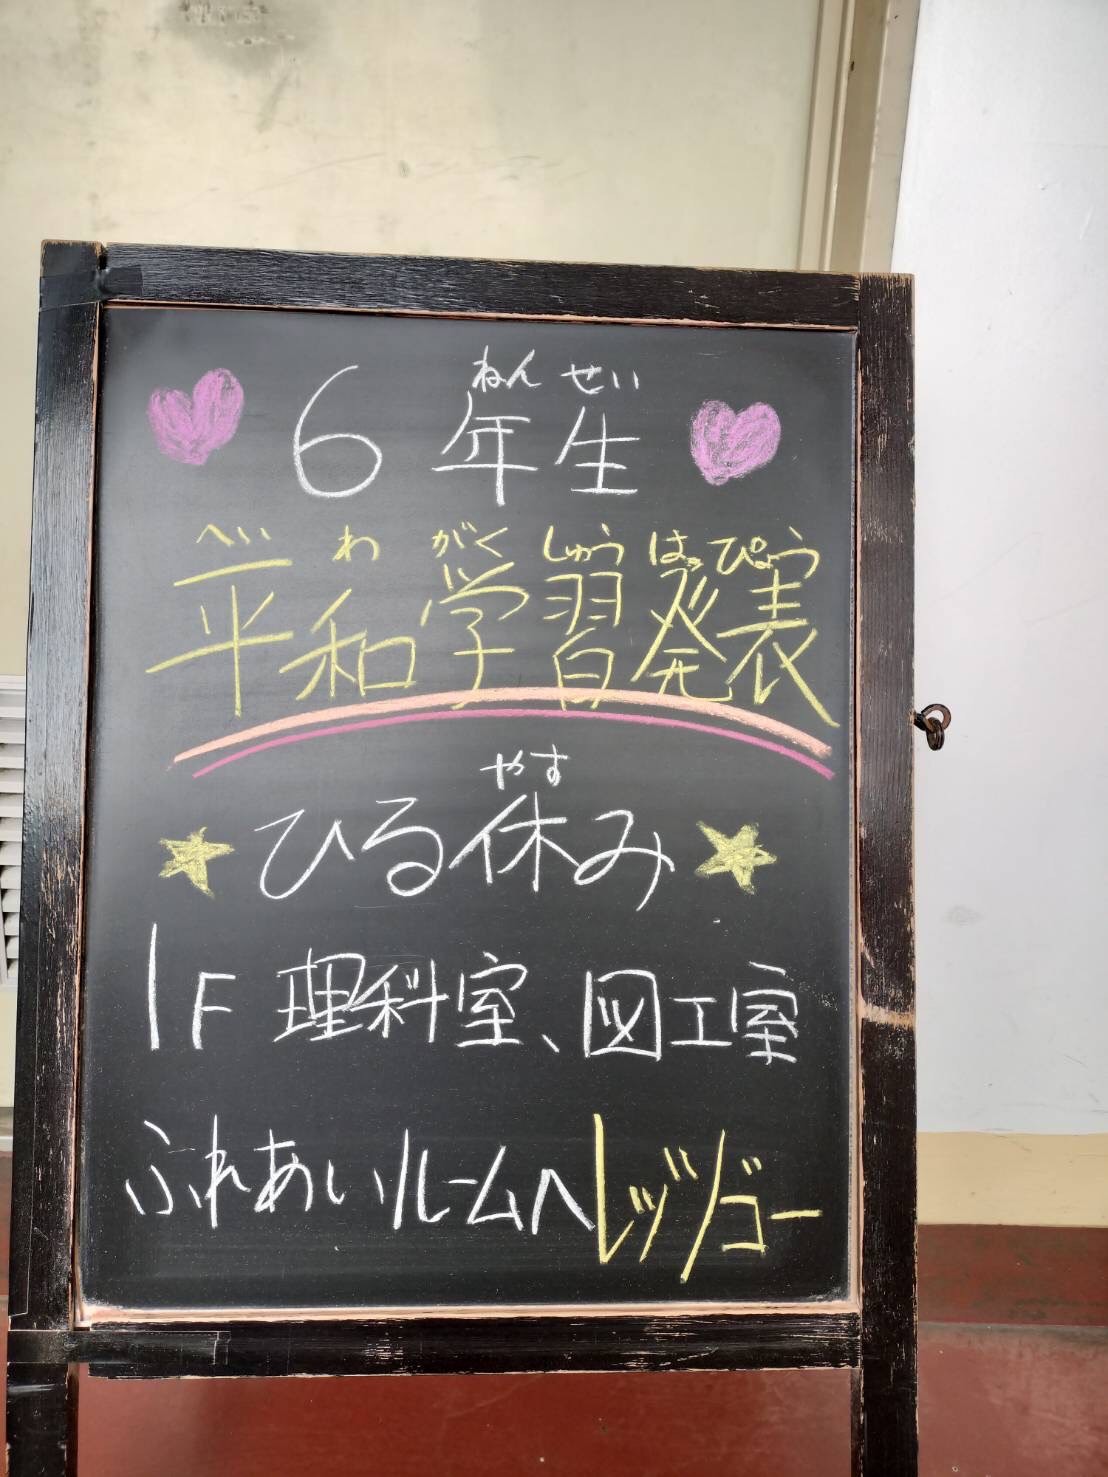 ねんせい
6年生
へいわがくしゅうはっぴょう
平和学習発表
やす
ひる休み
1F 理科室、図工室
ふれあいルームへレッツゴー